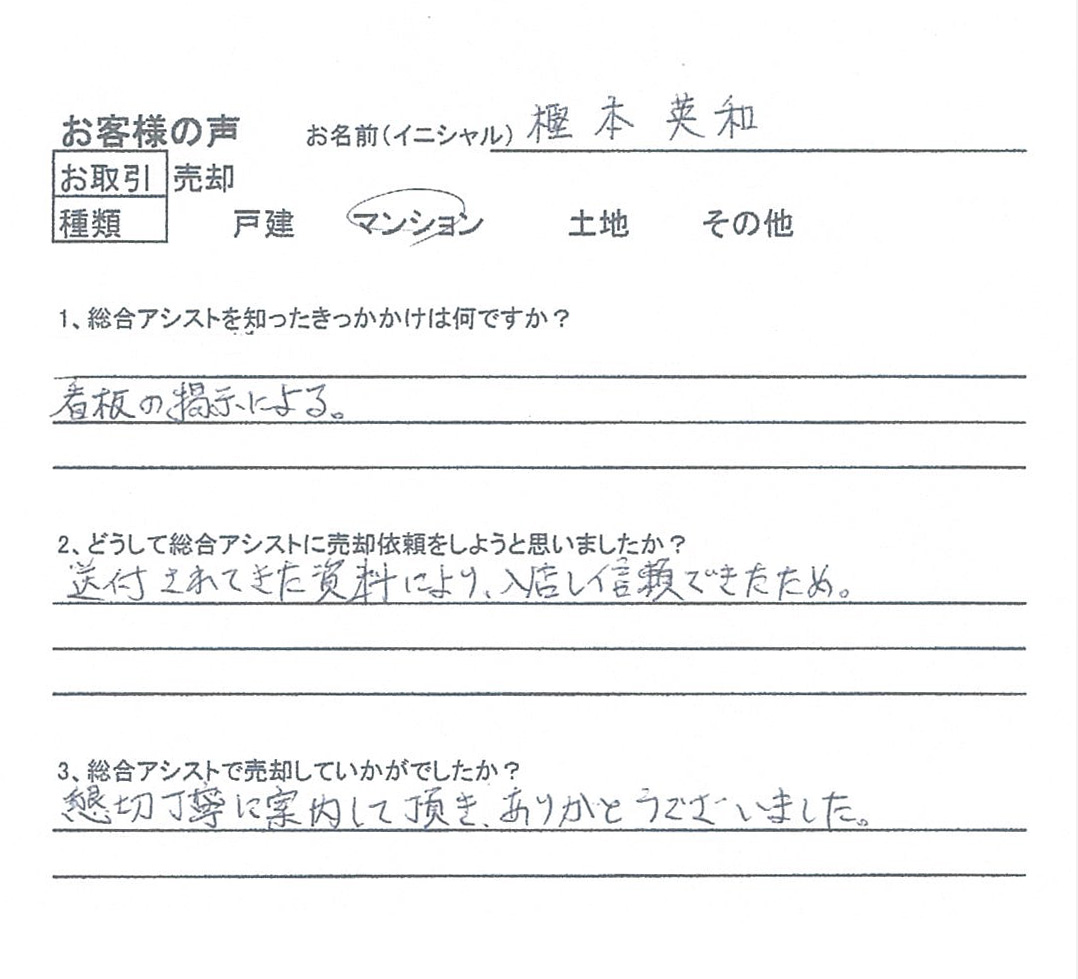 お客様の声 お名前(イニシャル) 樫本 英和
お取引 売却
種類 戸建 マンション 土地 その他
1、総合アシストを知ったきっかかけは何ですか?
看板の掲示による。
2、どうして総合アシストに売却依頼をしようと思いましたか?
送付されてきた資料により、入店し信頼できたため。
3、総合アシストで売却していかがでしたか?
懇切丁寧に案内して頂き、ありがとうございました。